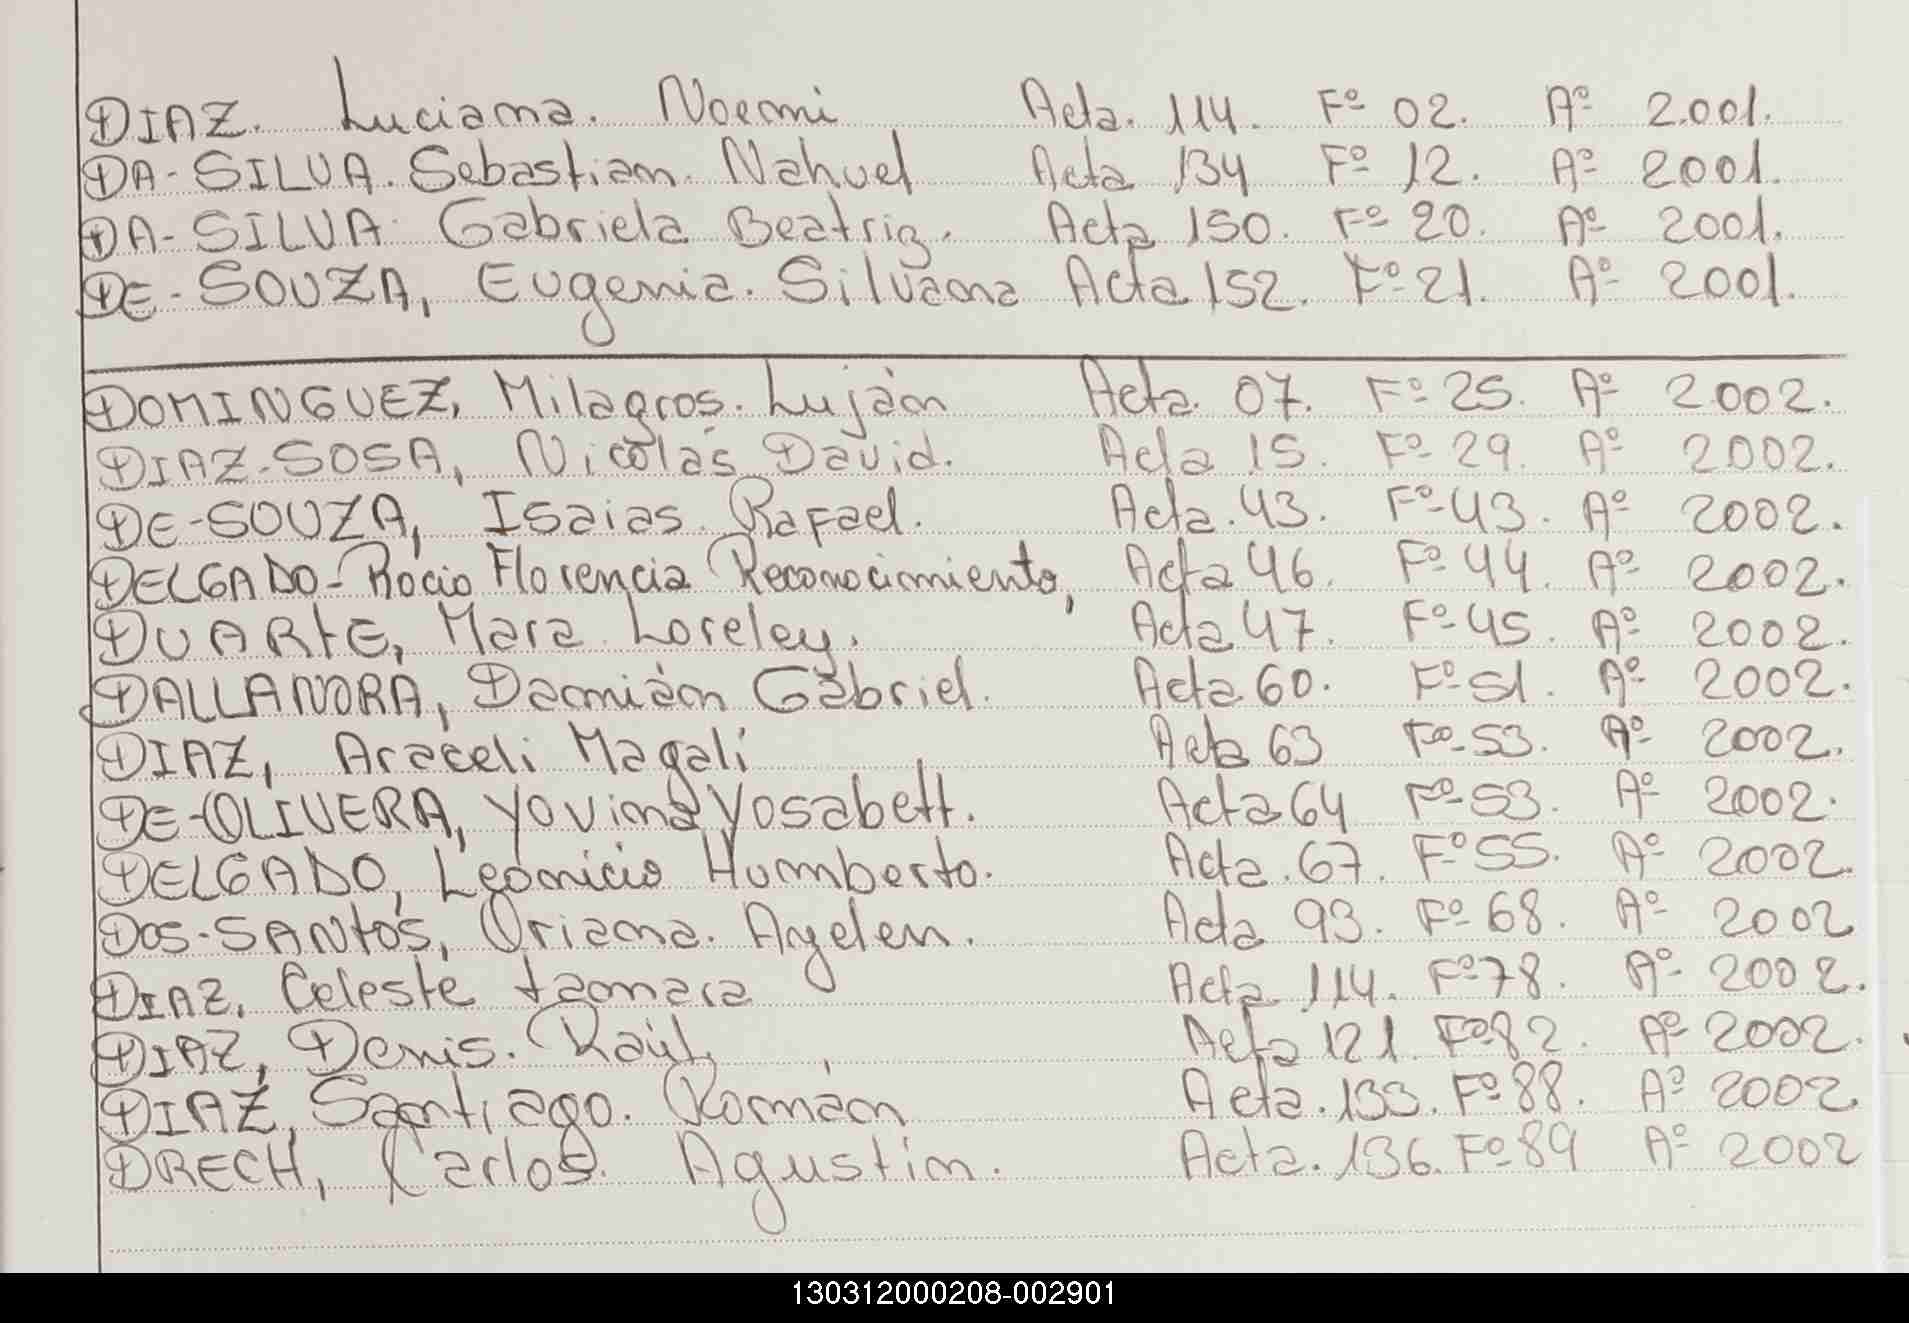 DIAZ. Luciana. Noemi Acta. 114. Fº 02. Aº 2.001.
DA-SILVA. Sebastian. Nahuel Acta 134 Fº 12. Aº 2001.
DA-SILVA. Gabriela Beatriz. Acta 150. Fº 20. Aº 2001.
DE-SOUZA, Eugenia. Silvana Acta 152. Fº 21. Aº 2001.
DOMINGUEZ, Milagros. Luján Acta. 07. Fº 25. Aº 2002.
DIAZ-SOSA, Nicolás David. Acta 15. Fº 29. Aº 2002.
DE-SOUZA, Isaias. Rafael. Acta. 43. Fº-43. Aº 2002.
DELGADO-Rocio Florencia Reconocimiento, Acta 46. Fº 44. Aº 2002.
DUARtE, Mara Loreley. Acta 47. Fº-45. Aº 2002.
DALLANORA, Damián Gabriel. Acta 60. Fº 51. Aº 2002.
DIAZ, Araceli Magali Acta 63 Fº-53. Aº 2002.
DE-OLIVERA, Yovina Yosabett. Acta 64 Fº-53. Aº 2002.
DELGADO, Leonicio Humberto. Acta. 67. Fº 55. Aº 2002.
DOS-SANtOS, Oriana. Ayelen. Acta 93. Fº 68. Aº 2002
DIAZ, Celeste tamara Acta 114. Fº 78. Aº 2002.
DIAZ, Denis. Raúl, Acta 121. Fº 82. Aº 2002.
DIAZ, Santiago. Román Acta. 133. Fº 88. Aº 2002.
DRECH, Carlos. Agustin. Acta. 136. Fº 89 Aº 2002
130312000208-002901